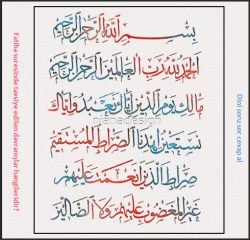 بِسْمِ اللَّهِ الرَّحْمَٰنِ الرَّحِيمِ
الْحَمْدُ لِلَّهِ رَبِّ الْعَالَمِينَ الرَّحْمَٰنِ الرَّحِيمِ
مَالِكِ يَوْمِ الدِّينِ إِيَّاكَ نَعْبُدُ وَإِيَّاكَ
نَسْتَعِينُ اهْدِنَا الصِّرَاطَ الْمُسْتَقِيمَ
صِرَاطَ الَّذِينَ أَنْعَمْتَ عَلَيْهِمْ
غَيْرِ الْمَغْضُوبِ عَلَيْهِمْ وَلَا الضَّالِّينَ
Fatiha suresinde tavsiye edilen davranışlar hangileridir?
Dini soru sor cevap al